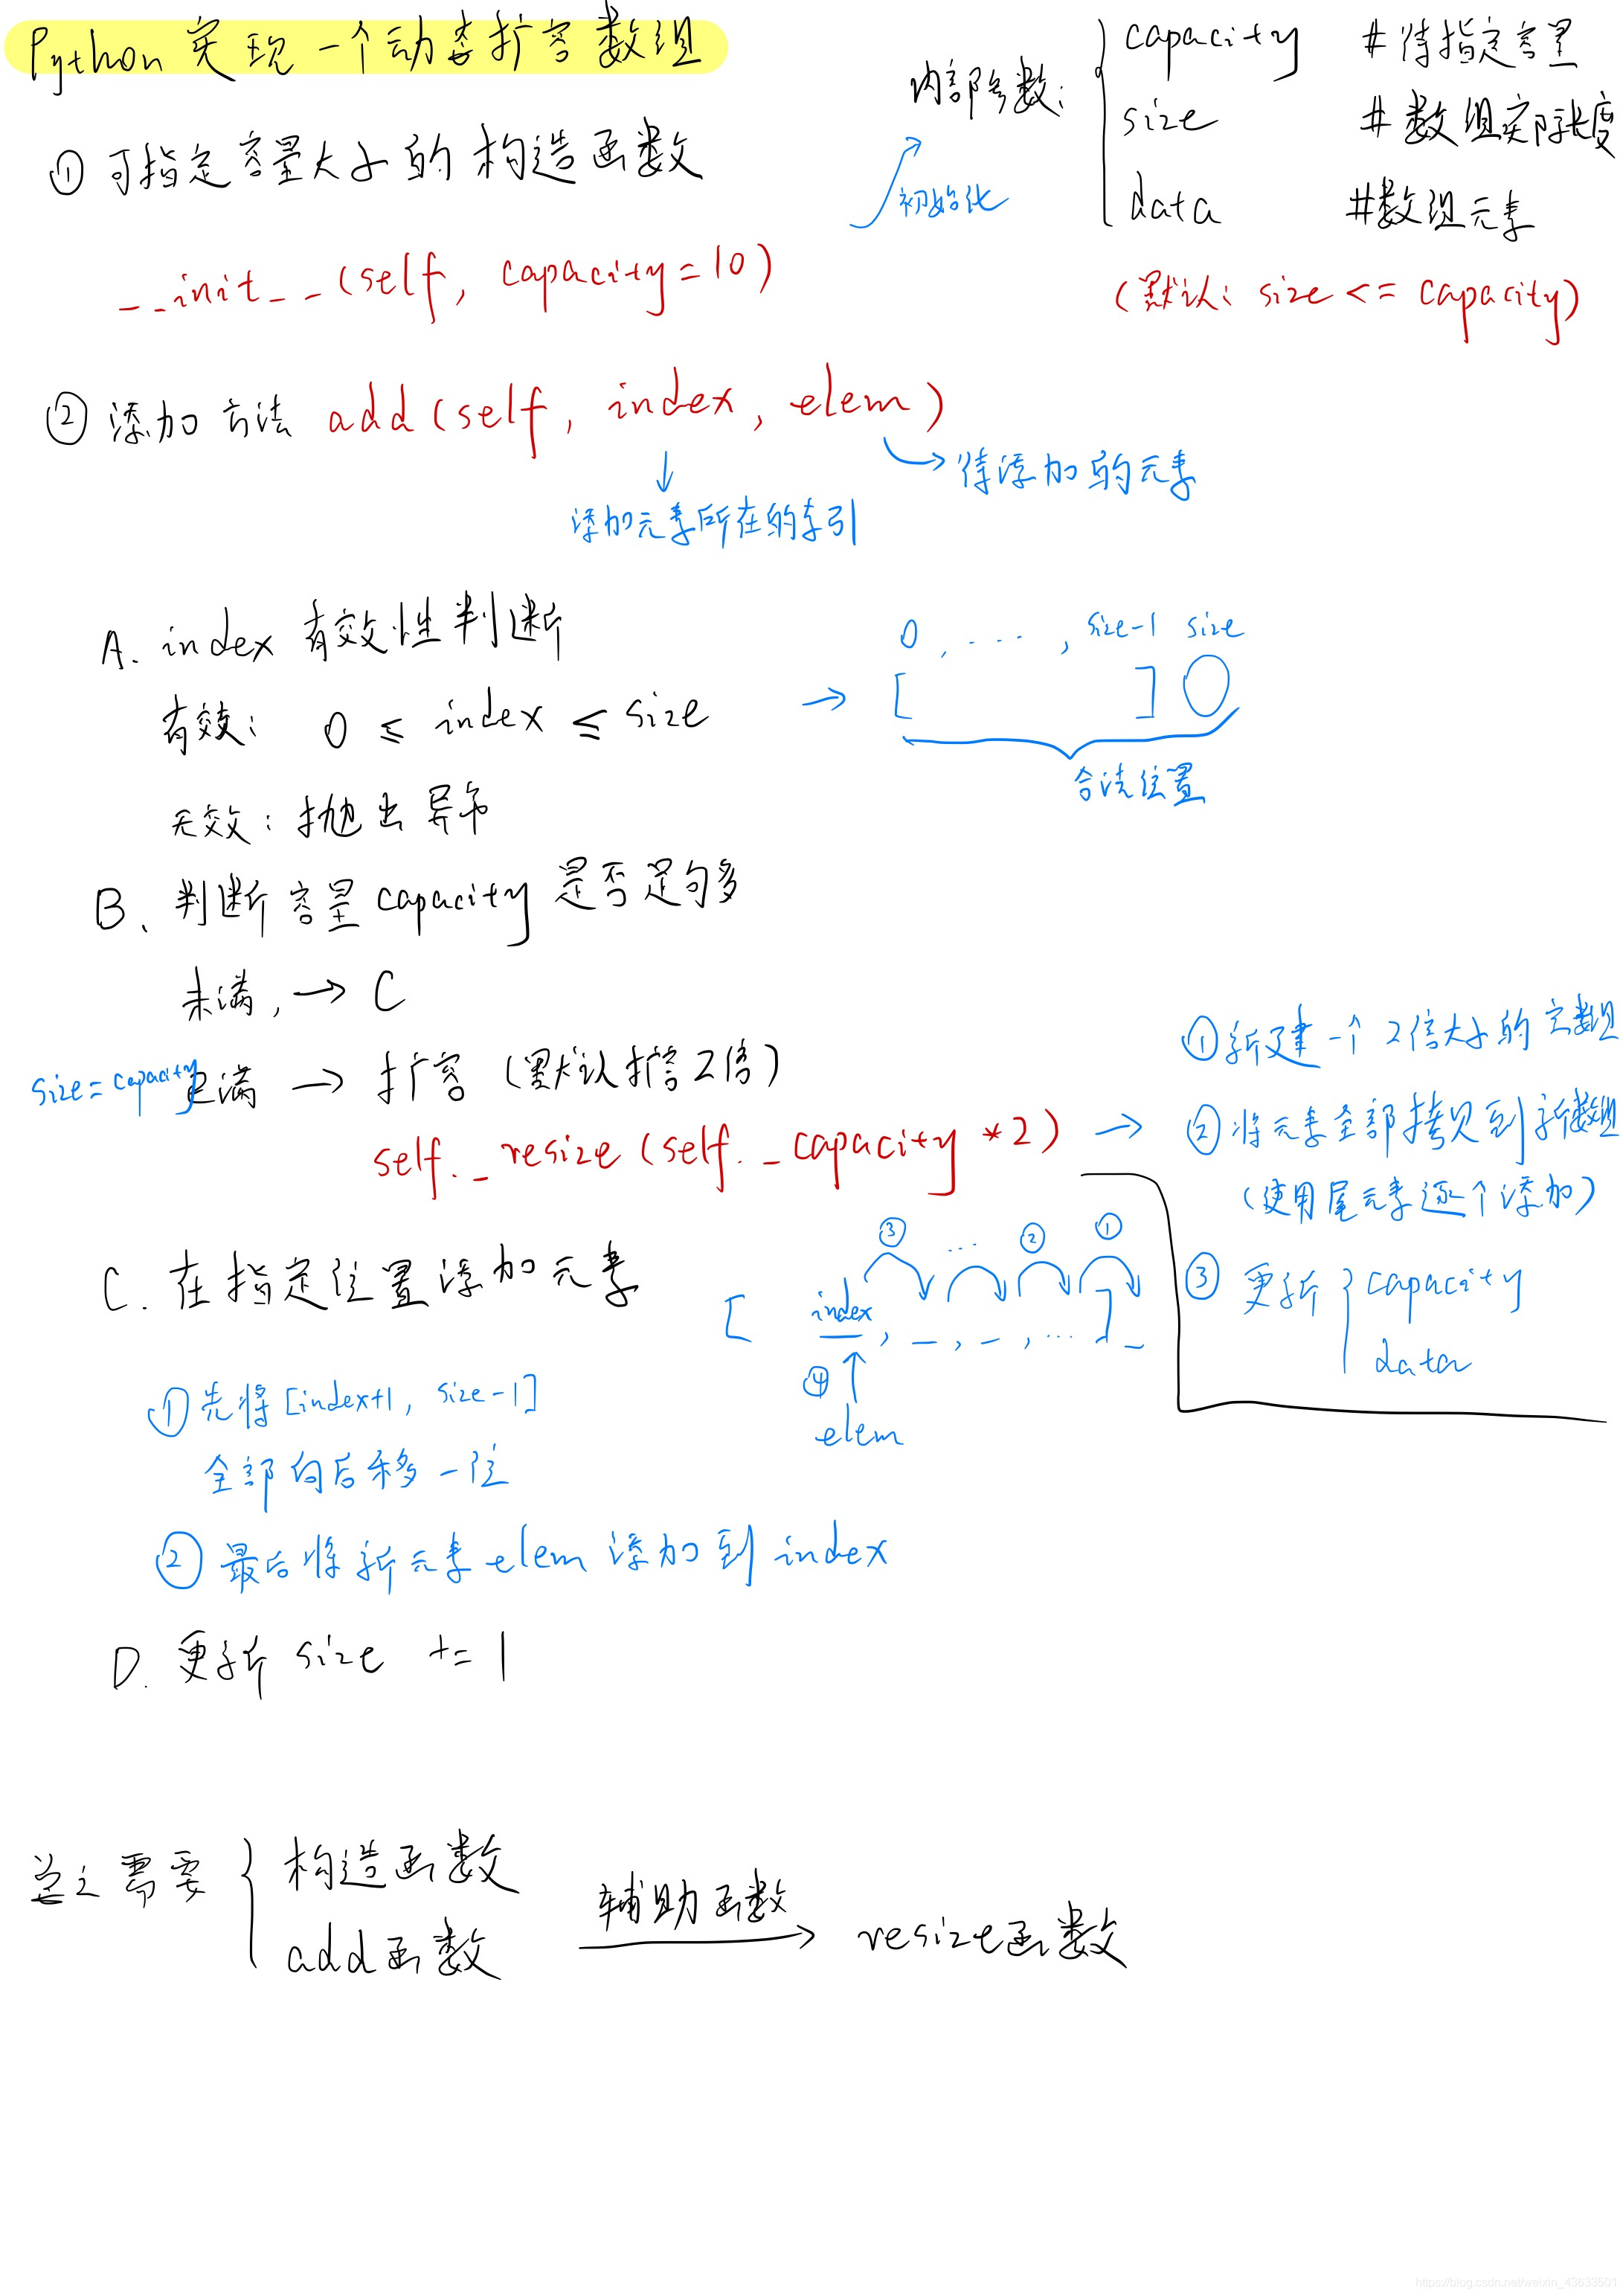 Python 实现一个动态扩容数组
① 可指定容量大小的构造函数
__init__(self, capacity=10)
初始化
内部参数:
capacity #待指定容量
size #数组实际长度
data #数组元素
(默认: size <= capacity)
② 添加方法 add(self, index, elem)
待添加的元素
添加元素所在的索引
A. index 有效性判断
有效: 0 ≤ index ≤ size
→
0, ...., size-1 size
[ ]
合法位置
无效: 抛出异常
B、判断容量capacity是否足够多
未满, → C
size=capacity
已满 → 扩容 (默认扩容2倍)
self._resize(self._capacity *2) →
①新建一个2倍大小的空数组
②将元素全部拷贝到新数组
(使用尾元素逐个添加)
③ 更新
capacity
data
C. 在指定位置添加元素
③ ... ② ①
[ index, _, _, ... ] _
④
elem
①先将[index+1, size-1]
全部向后移一位
② 最后将新元素elem添加到index
D. 更新 size += 1
总之需要
构造函数
add函数
辅助函数
resize函数
https://blog.csdn.net/weixin_43633501